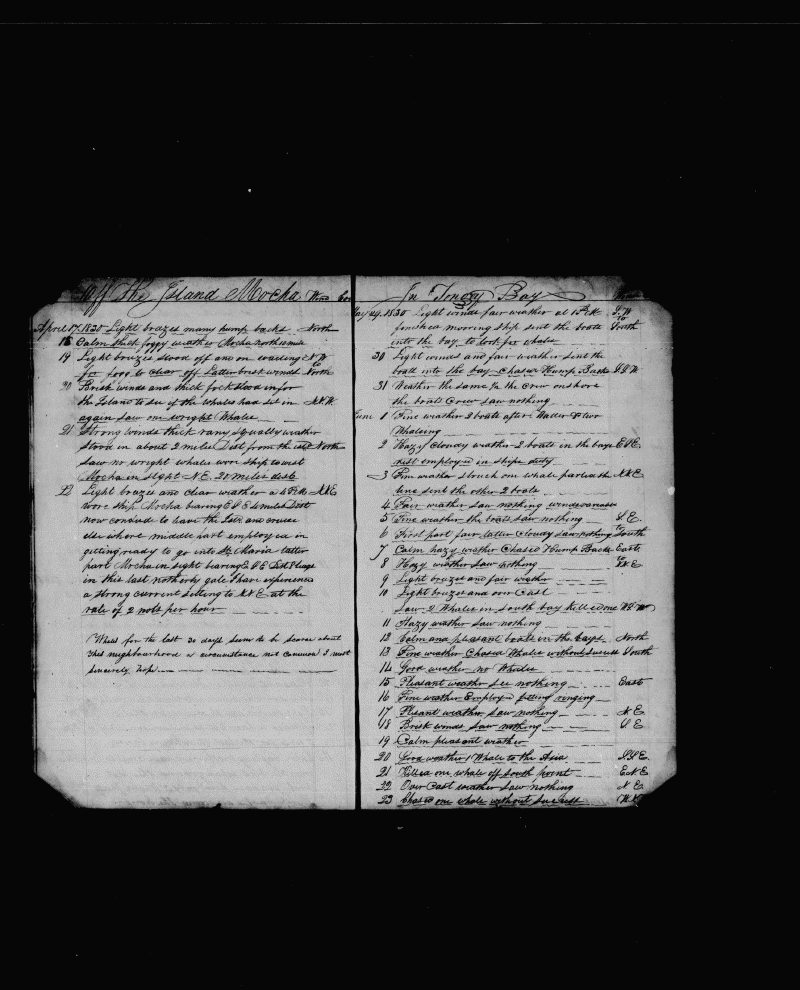 Off The Island Mocha Wind
April 17 1830 Light brazes many hump backs North
18 Calm thick foggy weather Mocha north
19 Light bruzes stood off and on waiting N W
for foog to clear off Latter brisk winds to North
20 Brisk winds and thick fock stood in for
the Island to see if the whales had set in N N W
again saw one wright Whale
21 Strong winds thick rany squally weather
stood in about 2 miles Dist from the North
saw no wright whale wore ship to west
Mocha in sight N E 20 miles dist
22 Light brazes and clear weather a 4 P M N N E
wore ship Mocha bearing E S E 4 miles Dist
now conclud to leave the Isle and cruise
else where middle part employed in
gitting ready to go into St Maria latter
part Mocha in sight bearing E S E Dist
in this last northerly gale I have experienced
a strong current setting to N N E at the
rate of 2 nots per hour
Whales for the last 30 days seem to be scarce about
this neighbourhood a circumstance not common I most
sincerely hope
In Tongoy Bay
May 29 1830 Light winds fair weather at 1 P M S W
finished mooring ship sent the boats to South
into the bay to look for whale
30 Light winds and fair weather sent the
boats into the bay Chased Hump Backs S S W
31 Weather the same 1/2 the crew on shore
the boats Crew saw nothing
June 1 Fine weather 2 boats after Water & two
Whaleing
2 Hazy cloudy weather 2 boats in the baye E S E
rest employed in ships duty
3 Fine weather struck one whale parted the N N E
line sent the other 2 boats
4 Fair weather saw nothing
5 Fine weather the boats saw nothing S E
6 First part fair latter cloudy saw nothing to South
7 Calm hazy weather Chased Hump Backs East
8 Hazy weather saw nothing to N N E
9 Light bruzes and fair weather
10 Light bruzes and over Cast
Saw 2 Whales in south bay killed one
11 Hazy weather saw nothing
12 Calm and pleasant boats in the bays North
13 Fine weather Chased Whales without success South
14 Good weather no Whales
15 Pleasant weather see nothing East
16 Fine weather Employed fitting ringing
17 Plesant weather saw nothing N E
18 Brisk winds saw nothing S E
19 Calm pleasant weather
20 Good weather 1 Whale to the Asia S S E
21 Killed one whale off south point E N E
22 Over Cast weather saw nothing N E
23 Chased one whale without success